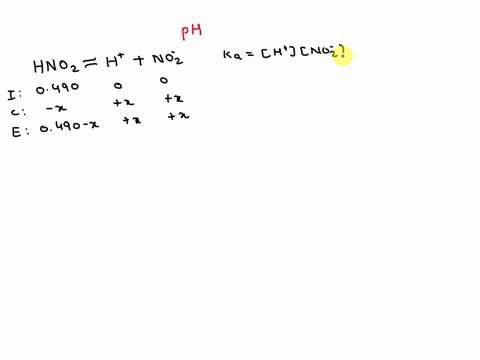 pH
HNO₂ ⇌ H⁺ + NO₂⁻
Ka = [H⁺][NO₂⁻]
I: 0.490 0 0
C: -x +x +x
E: 0.490-x +x +x